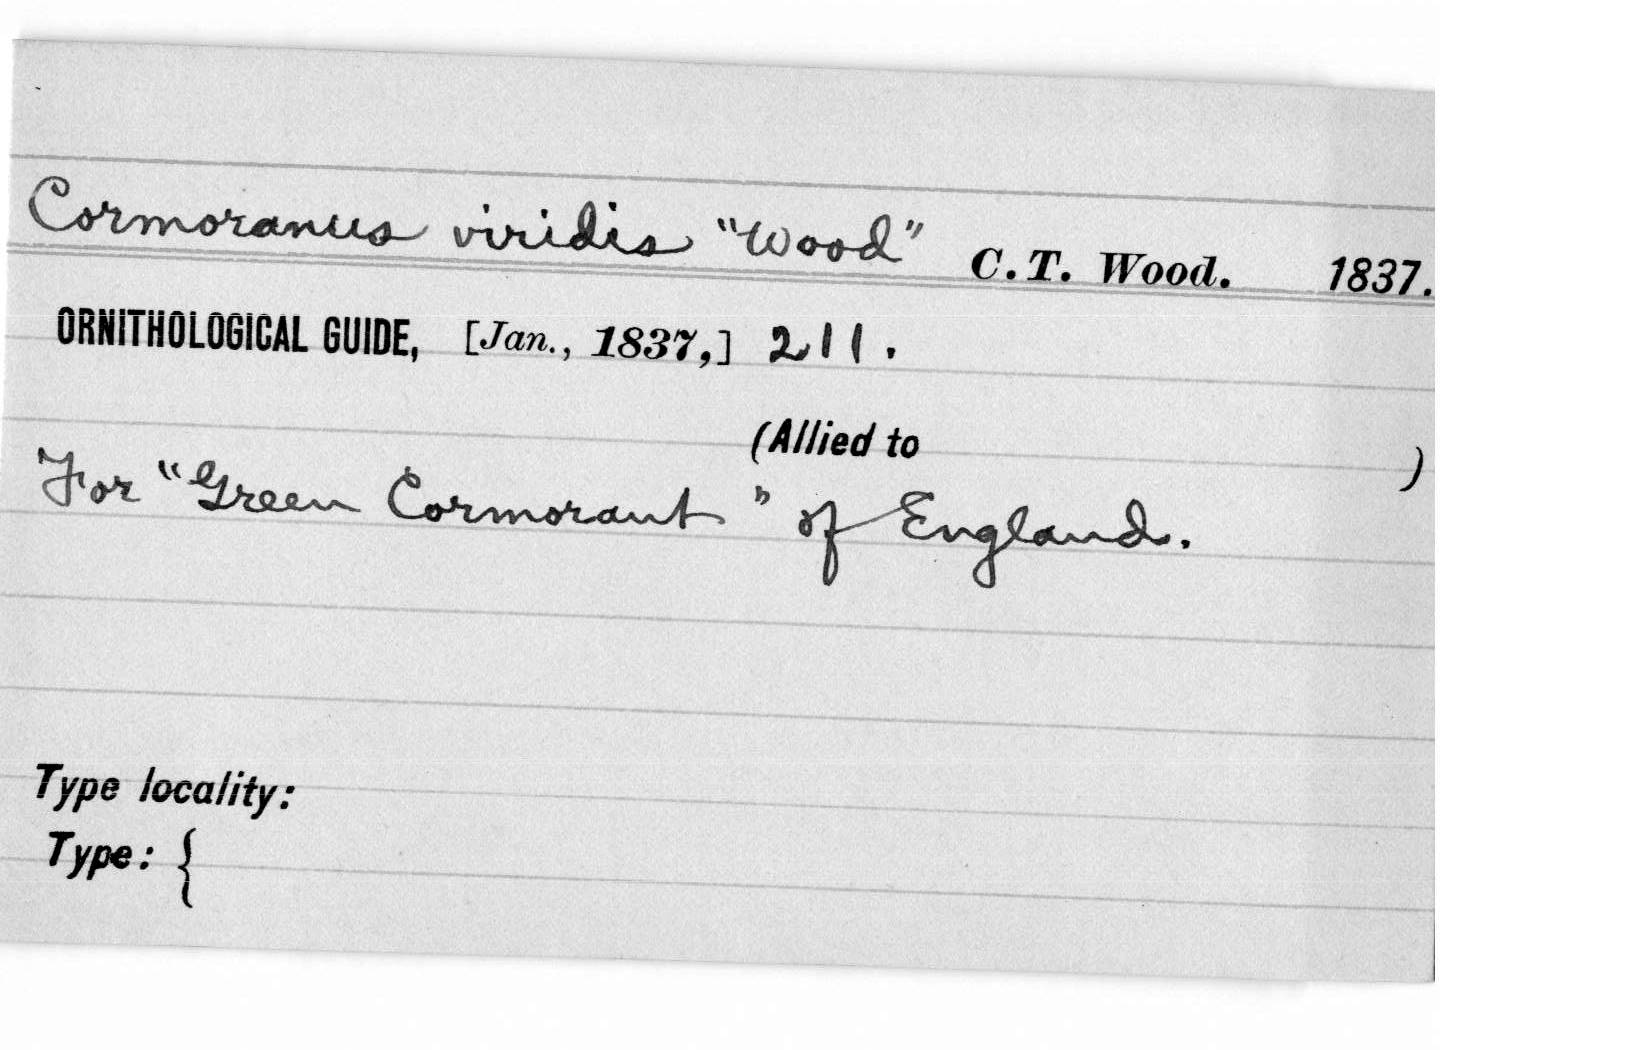 Cormoranus viridis "Wood" C. T. Wood. 1837.
ORNITHOLOGICAL GUIDE, [Jan., 1837,] 211.
(Allied to )
For "Green Cormorant" of England.
Type locality:
Type: {